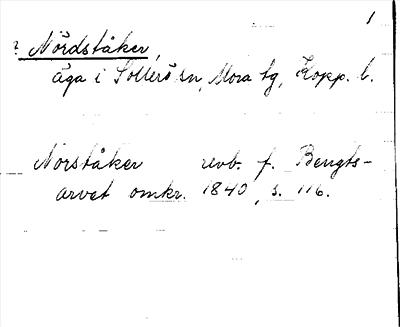 1
? Nordståker,
äga i Sollerö sn, Mora tg, Kopp. l.
Norståker revb. f. Bengts-
arvet omkr. 1840, s. 116.